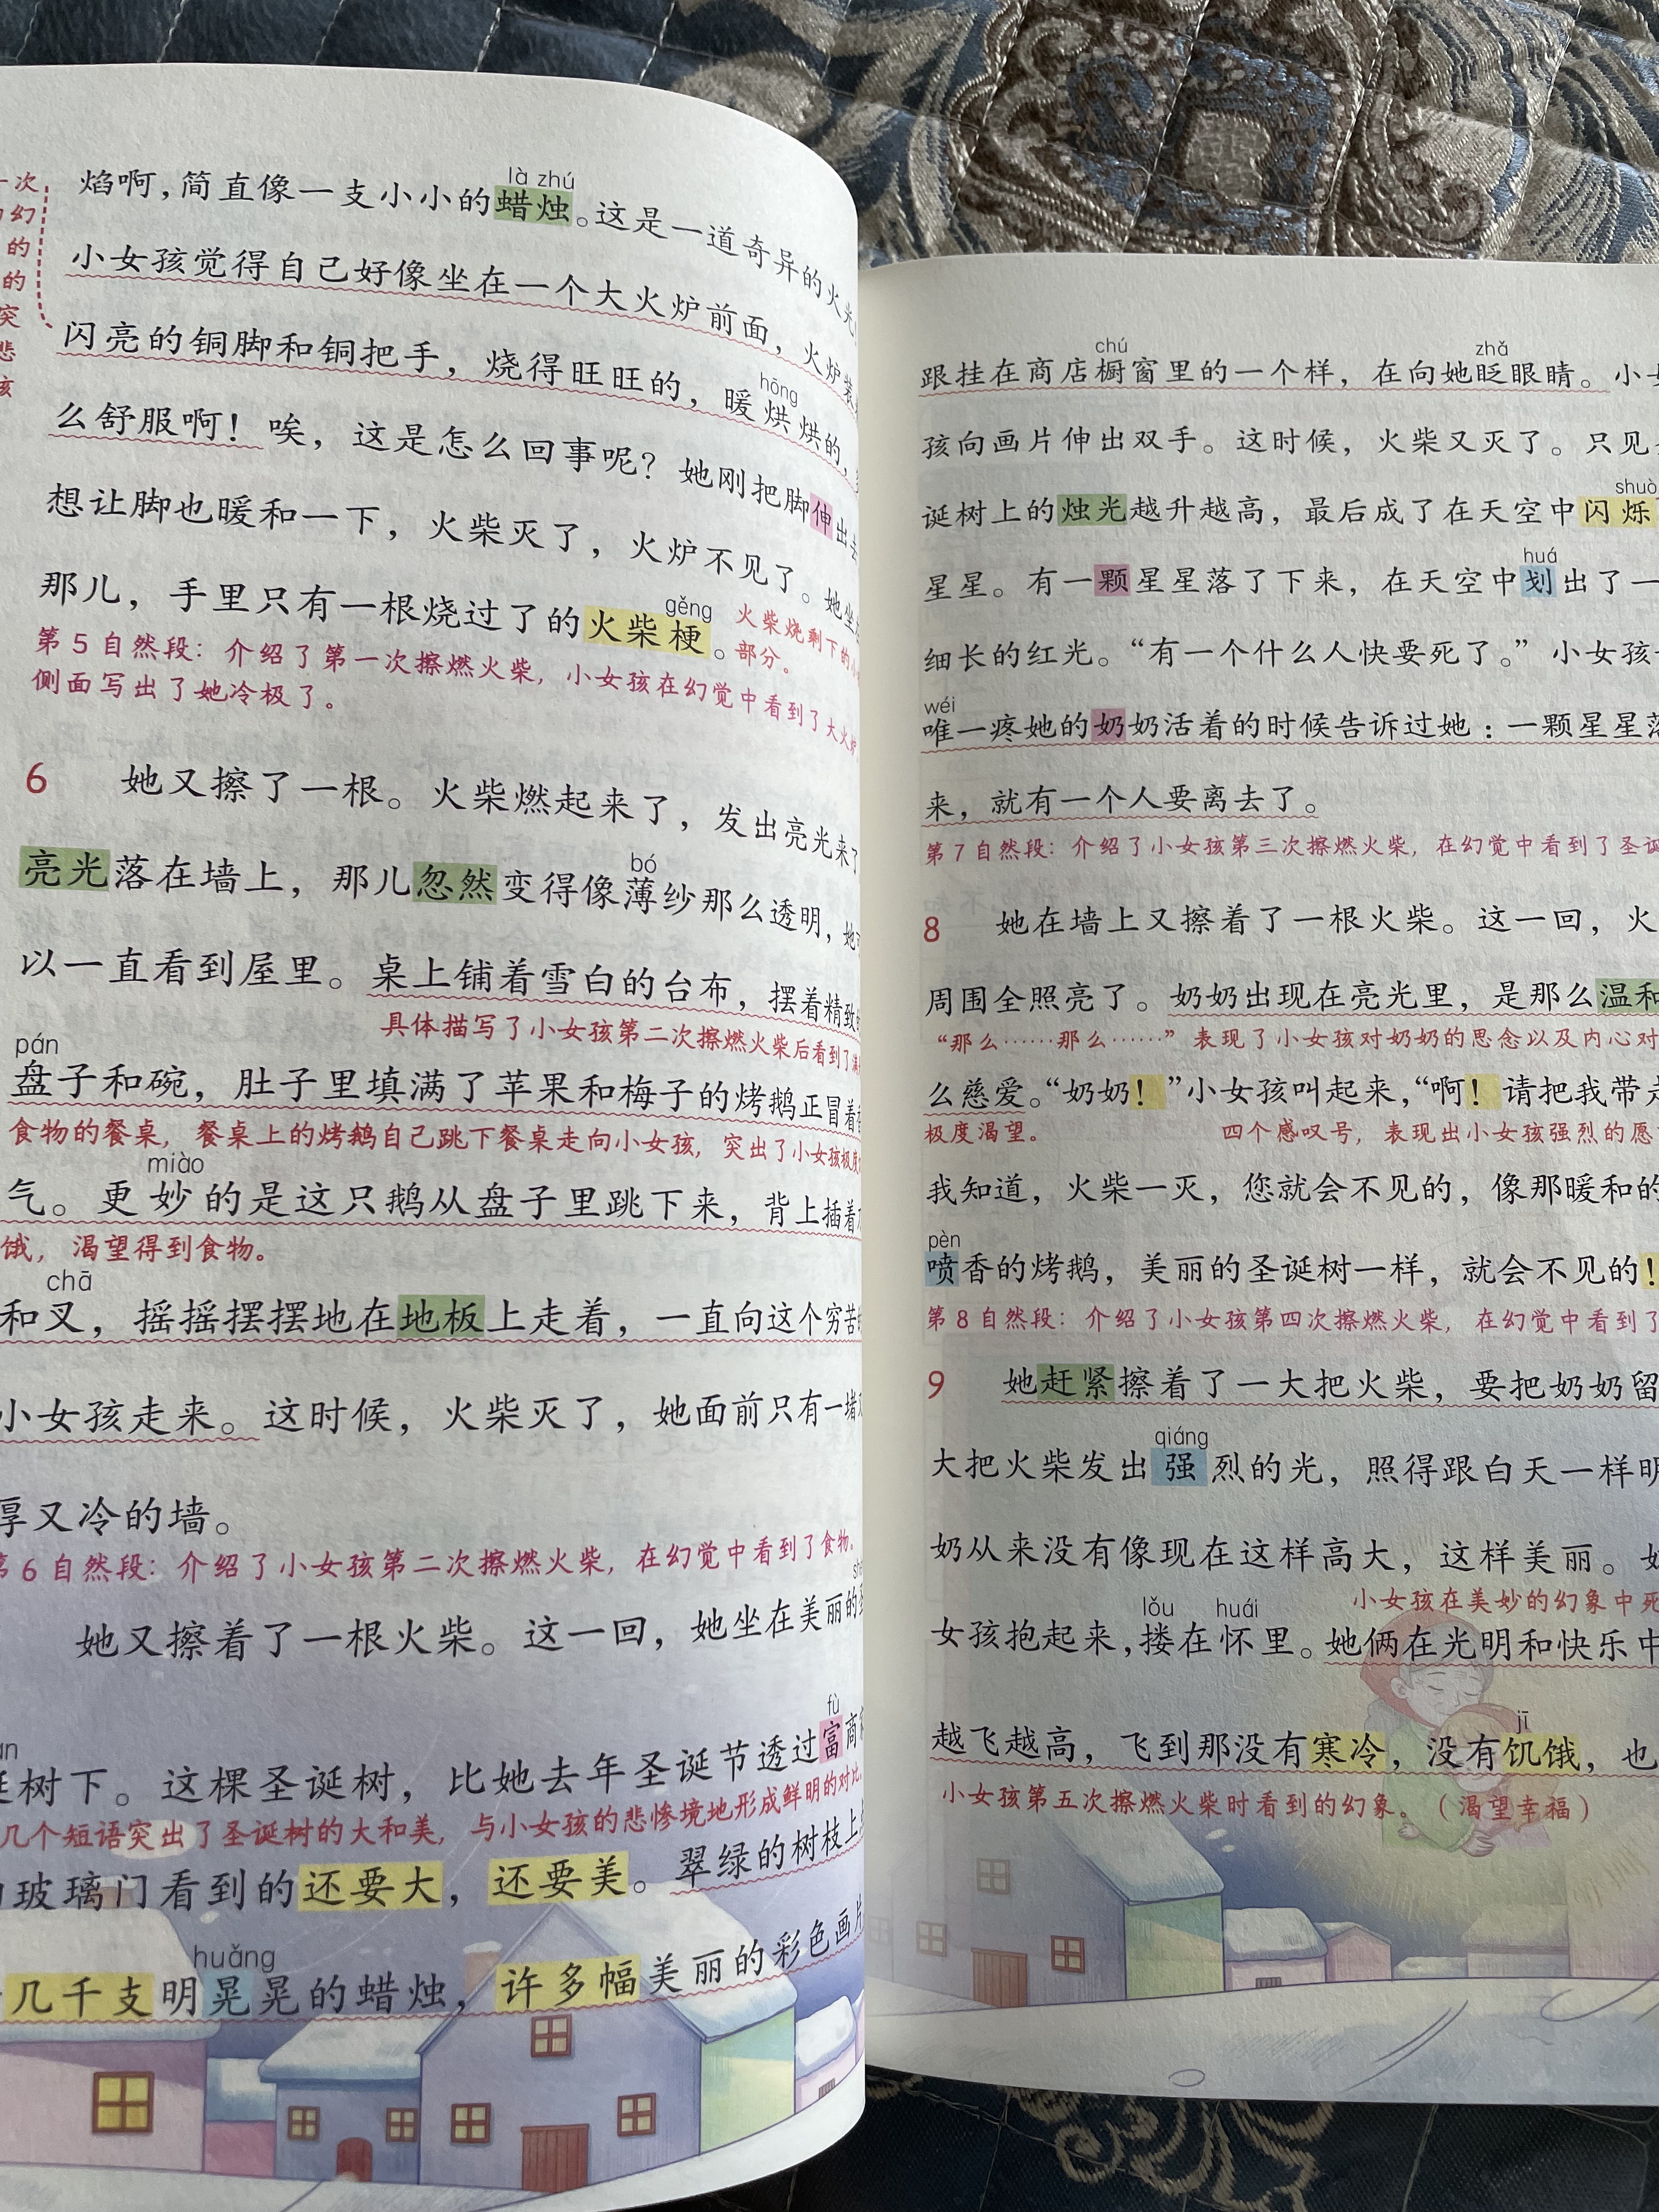 一次
幻
的
的
突
悲
孩
là zhú
焰啊，简直像一支小小的蜡烛。这是一道奇异的火光！
小女孩觉得自己好像坐在一个大火炉前面，火炉装
闪亮的铜脚和铜把手，烧得旺旺的，暖烘烘的，
hōng
么舒服啊！唉，这是怎么回事呢？她刚把脚伸出去
想让脚也暖和一下，火柴灭了，火炉不见了。她坐
gěng
那儿，手里只有一根烧过了的火柴梗。
火柴烧剩下的小
部分。
第5自然段：介绍了第一次擦燃火柴，小女孩在幻觉中看到了大火炉
侧面写出了她冷极了。
6 她又擦了一根。火柴燃起来了，发出亮光来了
bó
亮光落在墙上，那儿忽然变得像薄纱那么透明，她
以一直看到屋里。桌上铺着雪白的台布，摆着精致
具体描写了小女孩第二次擦燃火柴后看到了
pán
盘子和碗，肚子里填满了苹果和梅子的烤鹅正冒着
食物的餐桌，餐桌上的烤鹅自己跳下餐桌走向小女孩，突出了小女孩极度
miào
气。更妙的是这只鹅从盘子里跳下来，背上插着
饿，渴望得到食物。
chā
和叉，摇摇摆摆地在地板上走着，一直向这个穷苦
小女孩走来。这时候，火柴灭了，她面前只有一堵
厚又冷的墙。
第6自然段：介绍了小女孩第二次擦燃火柴，在幻觉中看到了食物。
她又擦着了一根火柴。这一回，她坐在美丽的圣
fù
诞树下。这棵圣诞树，比她去年圣诞节透过富商
几个短语突出了圣诞树的大和美，与小女孩的悲惨境地形成鲜明的对比
玻璃门看到的还要大，还要美。翠绿的树枝上
huǎng
几千支明晃晃的蜡烛，许多幅美丽的彩色画片
chú zhǎ
跟挂在商店橱窗里的一个样，在向她眨眼睛。小女
孩向画片伸出双手。这时候，火柴又灭了。只见
shuò
诞树上的烛光越升越高，最后成了在天空中闪烁
huá
星星。有一颗星星落了下来，在天空中划出了一
细长的红光。“有一个什么人快要死了。”小女孩
wéi
唯一疼她的奶奶活着的时候告诉过她：一颗星星落
来，就有一个人要离去了。
第7自然段：介绍了小女孩第三次擦燃火柴，在幻觉中看到了圣诞
8 她在墙上又擦着了一根火柴。这一回，火
周围全照亮了。奶奶出现在亮光里，是那么温和
“那么……那么……”表现了小女孩对奶奶的思念以及内心对
么慈爱。“奶奶！”小女孩叫起来，“啊！请把我带走
极度渴望。 四个感叹号，表现出小女孩强烈的愿
我知道，火柴一灭，您就会不见的，像那暖和的
pèn
喷香的烤鹅，美丽的圣诞树一样，就会不见的！
第8自然段：介绍了小女孩第四次擦燃火柴，在幻觉中看到了
9 她赶紧擦着了一大把火柴，要把奶奶留
qiáng
大把火柴发出强烈的光，照得跟白天一样明
奶从来没有像现在这样高大，这样美丽。奶
小女孩在美妙的幻象中死
lǒu huái
女孩抱起来，搂在怀里。她俩在光明和快乐中
jī
越飞越高，飞到那没有寒冷，没有饥饿，也
小女孩第五次擦燃火柴时看到的幻象。（渴望幸福）